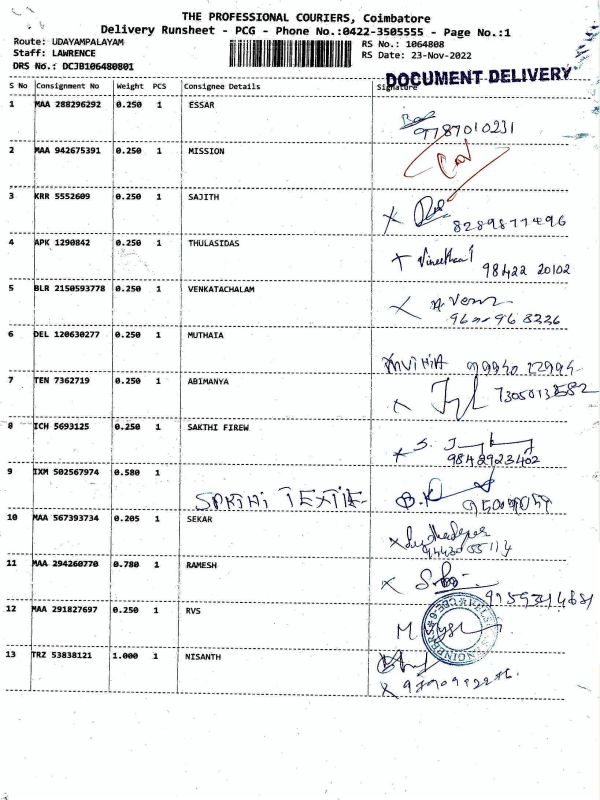 THE PROFESSIONAL COURIERS, Coimbatore
Delivery Runsheet - PCG - Phone No.:0422-3505555 - Page No.:1
Route: UDAYAMPALAYAM RS No.: 1064808
Staff: LAWRENCE RS Date: 23-Nov-2022
DRS No.: DCJB106480801
DOCUMENT DELIVERY
S No Consignment No Weight PCS Consignee Details Signature
1 MAA 288296292 0.250 1 ESSAR
9787010231
2 MAA 942675391 0.250 1 MISSION
3 KRR 5552609 0.250 1 SAJITH
8289877496
4 APK 1290842 0.250 1 THULASIDAS
98422 20102
5 BLR 2150593778 0.250 1 VENKATACHALAM
6 DEL 120630277 0.250 1 MUTHAIA
7 TEN 7362719 0.250 1 ABIMANYA
8 ICH 5693125 0.250 1 SAKTHI FIREW
9842923402
9 IXM 502567974 0.580 1
SAKTHI TEXTIE
10 MAA 567393734 0.205 1 SEKAR
11 MAA 294260770 0.780 1 RAMESH
12 MAA 291827697 0.250 1 RVS
13 TRZ 53838121 1.000 1 NISANTH